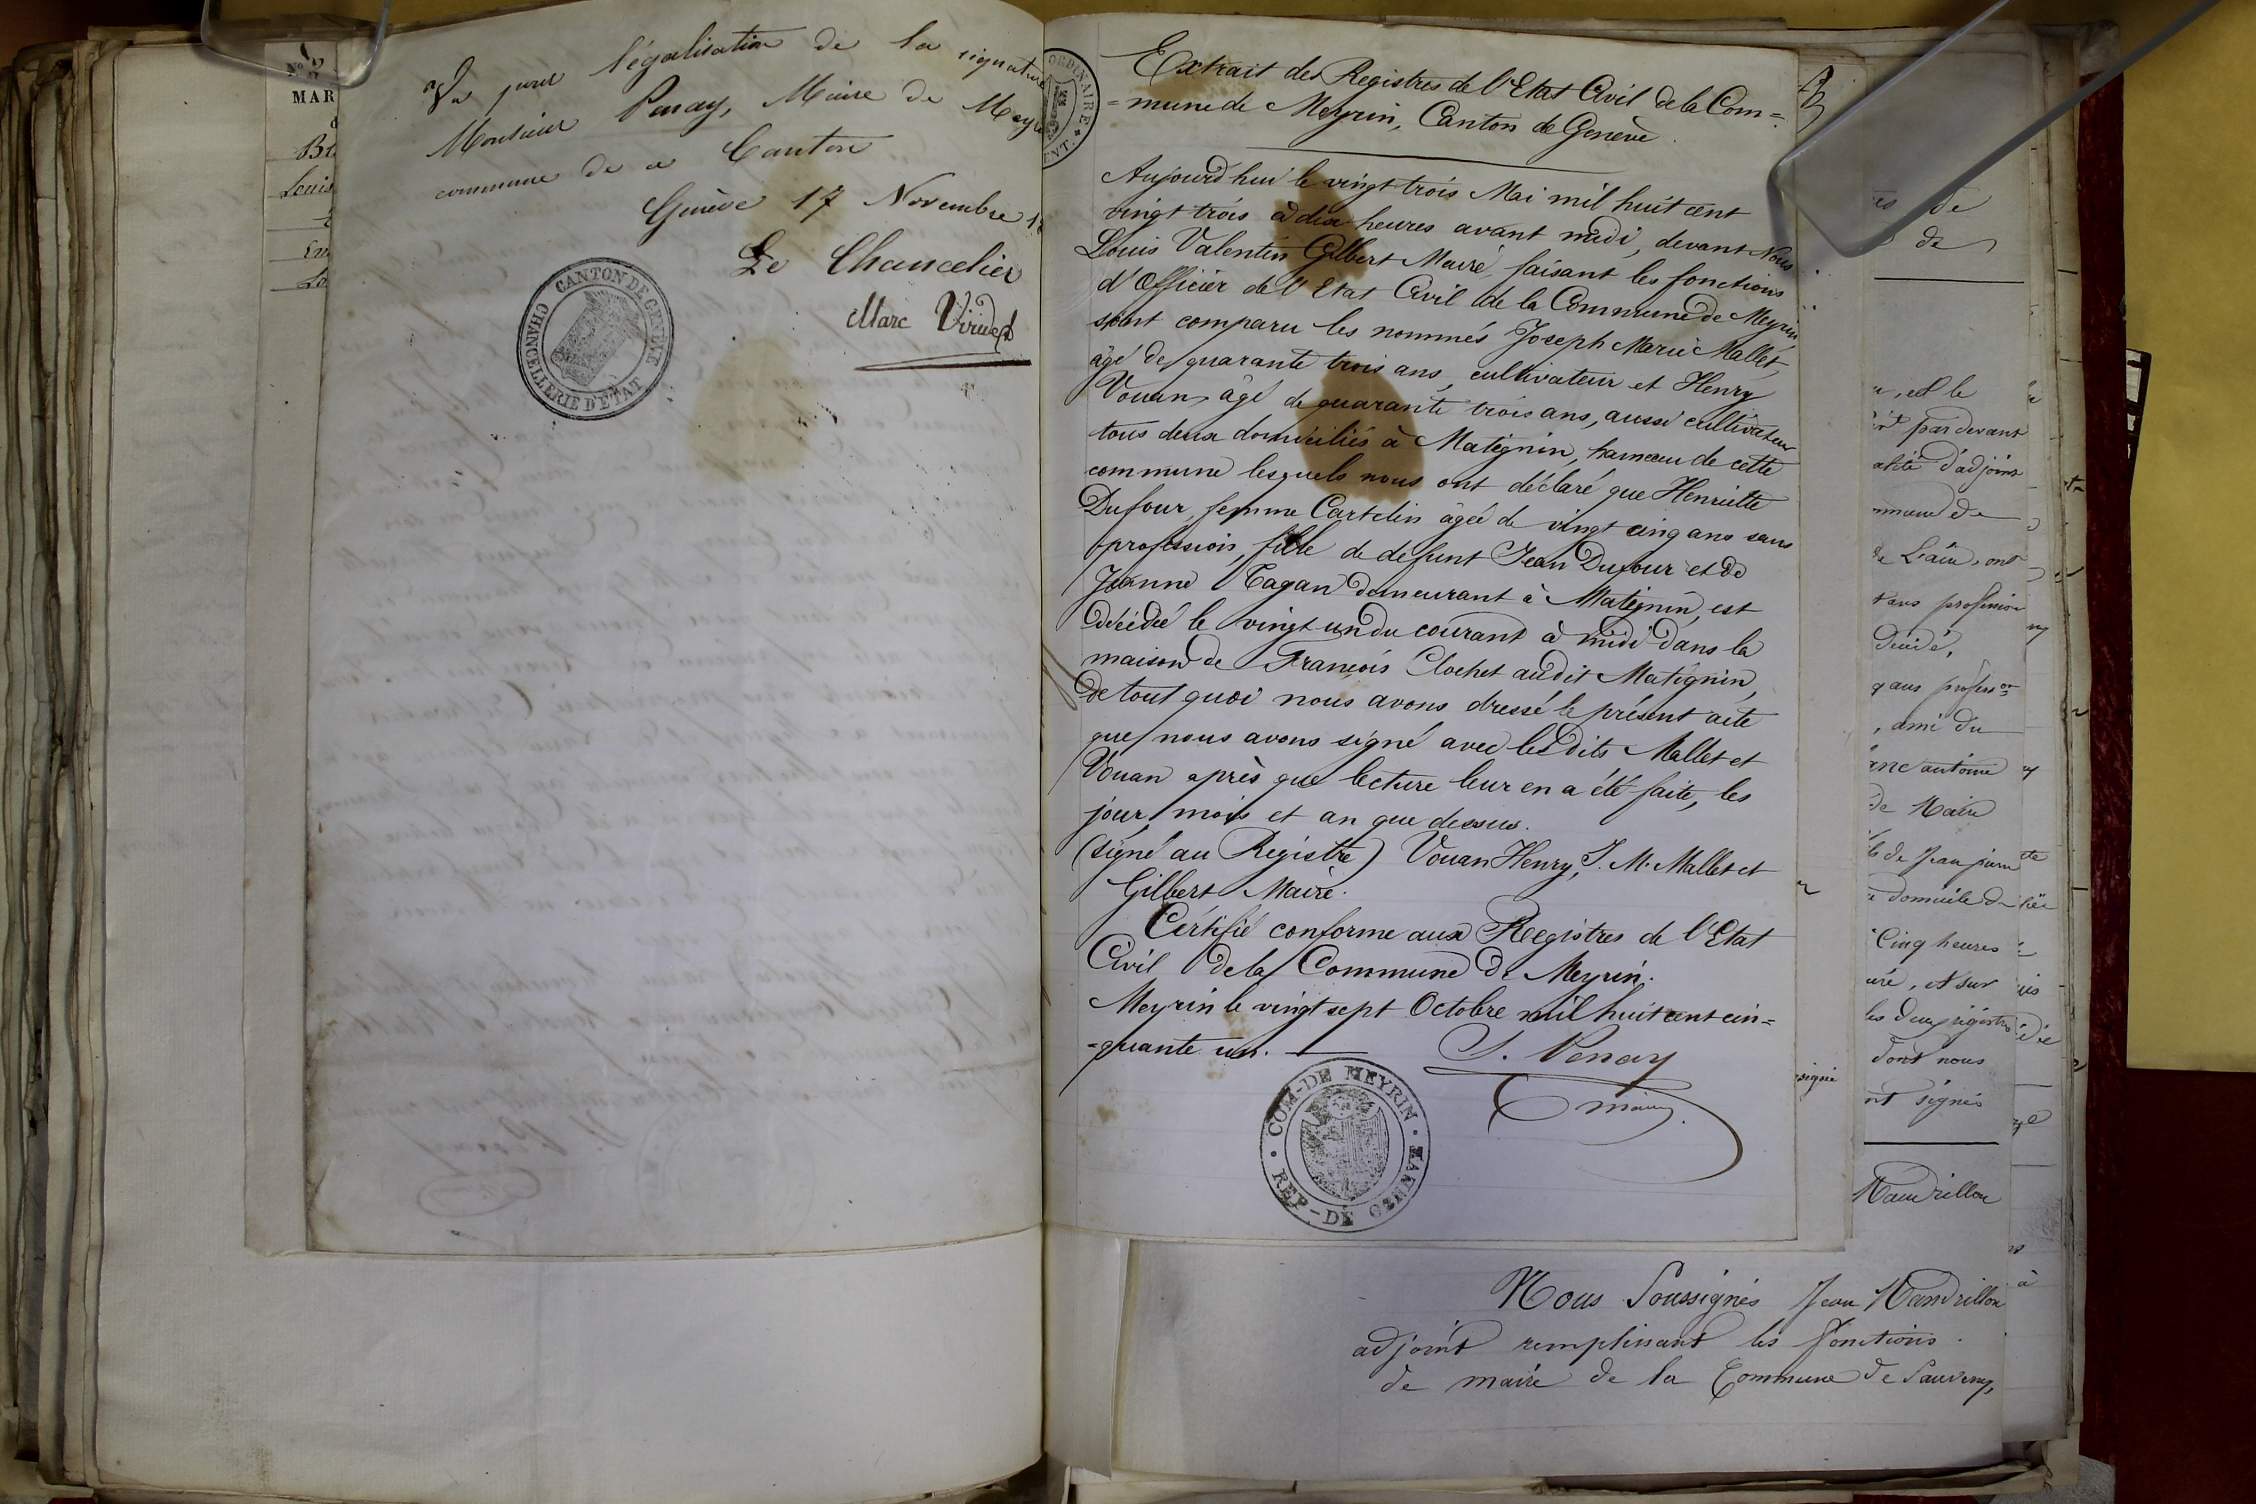 Vu pour légalisation de la signature
Monsieur Penay, Maire de Meyr
commune de ce Canton
Genève 17 Novembre 1
Le Chancelier
Marc Viridet
CANTON DE GENEVE
CHANCELLERIE D'ÉTAT
No
MAR
Louis
ORDINAIRE
Extrait des Registres de l'Etat Civil de la Com=
=mune de Meyrin, Canton de Genève.
Aujourd'hui le vingt trois Mai mil huit cent
vingt trois à dix heures avant midi, devant Nous
Louis Valentin Gilbert Maire, faisant les fonctions
d'Officier de l'Etat Civil de la Commune de Meyrin
sont comparu les nommés Joseph Marie Mallet,
âgé de quarante trois ans, cultivateur et Henry
Vouan, âgé de quarante trois ans, aussi cultivateur
tous deux domiciliés à Mategnin, hameau de cette
commune lesquels nous ont déclaré que Henriette
Dufour, femme Cartelin âgée de vingt cinq ans sans
profession, fille de defunt Jean Dufour et de
Jeanne Tagan demeurant à Mategnin, est
décédée le vingt un du courant à midi dans la
maison de François Clochet audit Mategnin,
de tout quoi nous avons dressé le présent acte
que nous avons signé avec les dits Mallet et
Vouan après que lecture leur en a été faite, les
jour, mois et an que dessus.
(signé au Registre) Vouan Henry, J. M. Mallet et
Gilbert Maire.
Certifié conforme aux Registres de l'Etat
Civil de la Commune de Meyrin.
Meyrin le vingt sept Octobre mil huit cent cin=
=quante un.
S. Penay
maire
COM-DE MEYRIN
REP-DE GENEVE
de
de
, est le
par devant
d'adjoint
de L'ain, ont
sans profession
décidé,
, ami du
antoine
de Maire
de Jean pierre
domicile de
Cinq heures
, et sur
les deux registres
dont nous
ont signés
Mandrillon
Nous Soussignés Jean Mandrillon
adjoint remplissant les fonctions
de maire de la Commune de Sauverny,